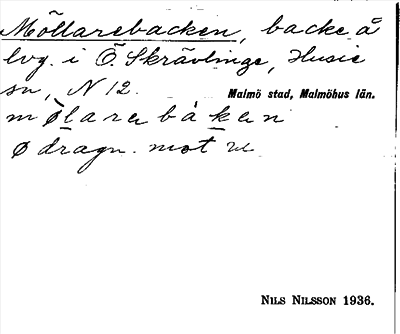 Möllarebacken, backe å
lvg. i Ö. Skrävlinge, Husie
sn, N 12. Malmö stad, Malmöhus län.
mølarebåken
ø dragn. mot
NILS NILSSON 1936.